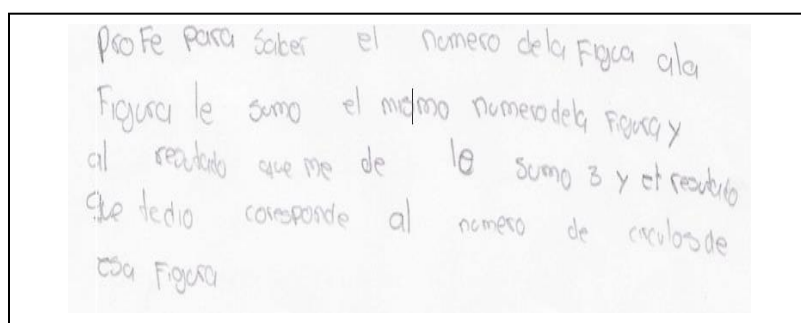 Profe para saber el numero dela Figua ala
Figura le sumo el mismo numero dela Figura y
al resutado que me de le sumo 3 y et resutado
que tedio coresponde al numero de circulos de
esa Figura